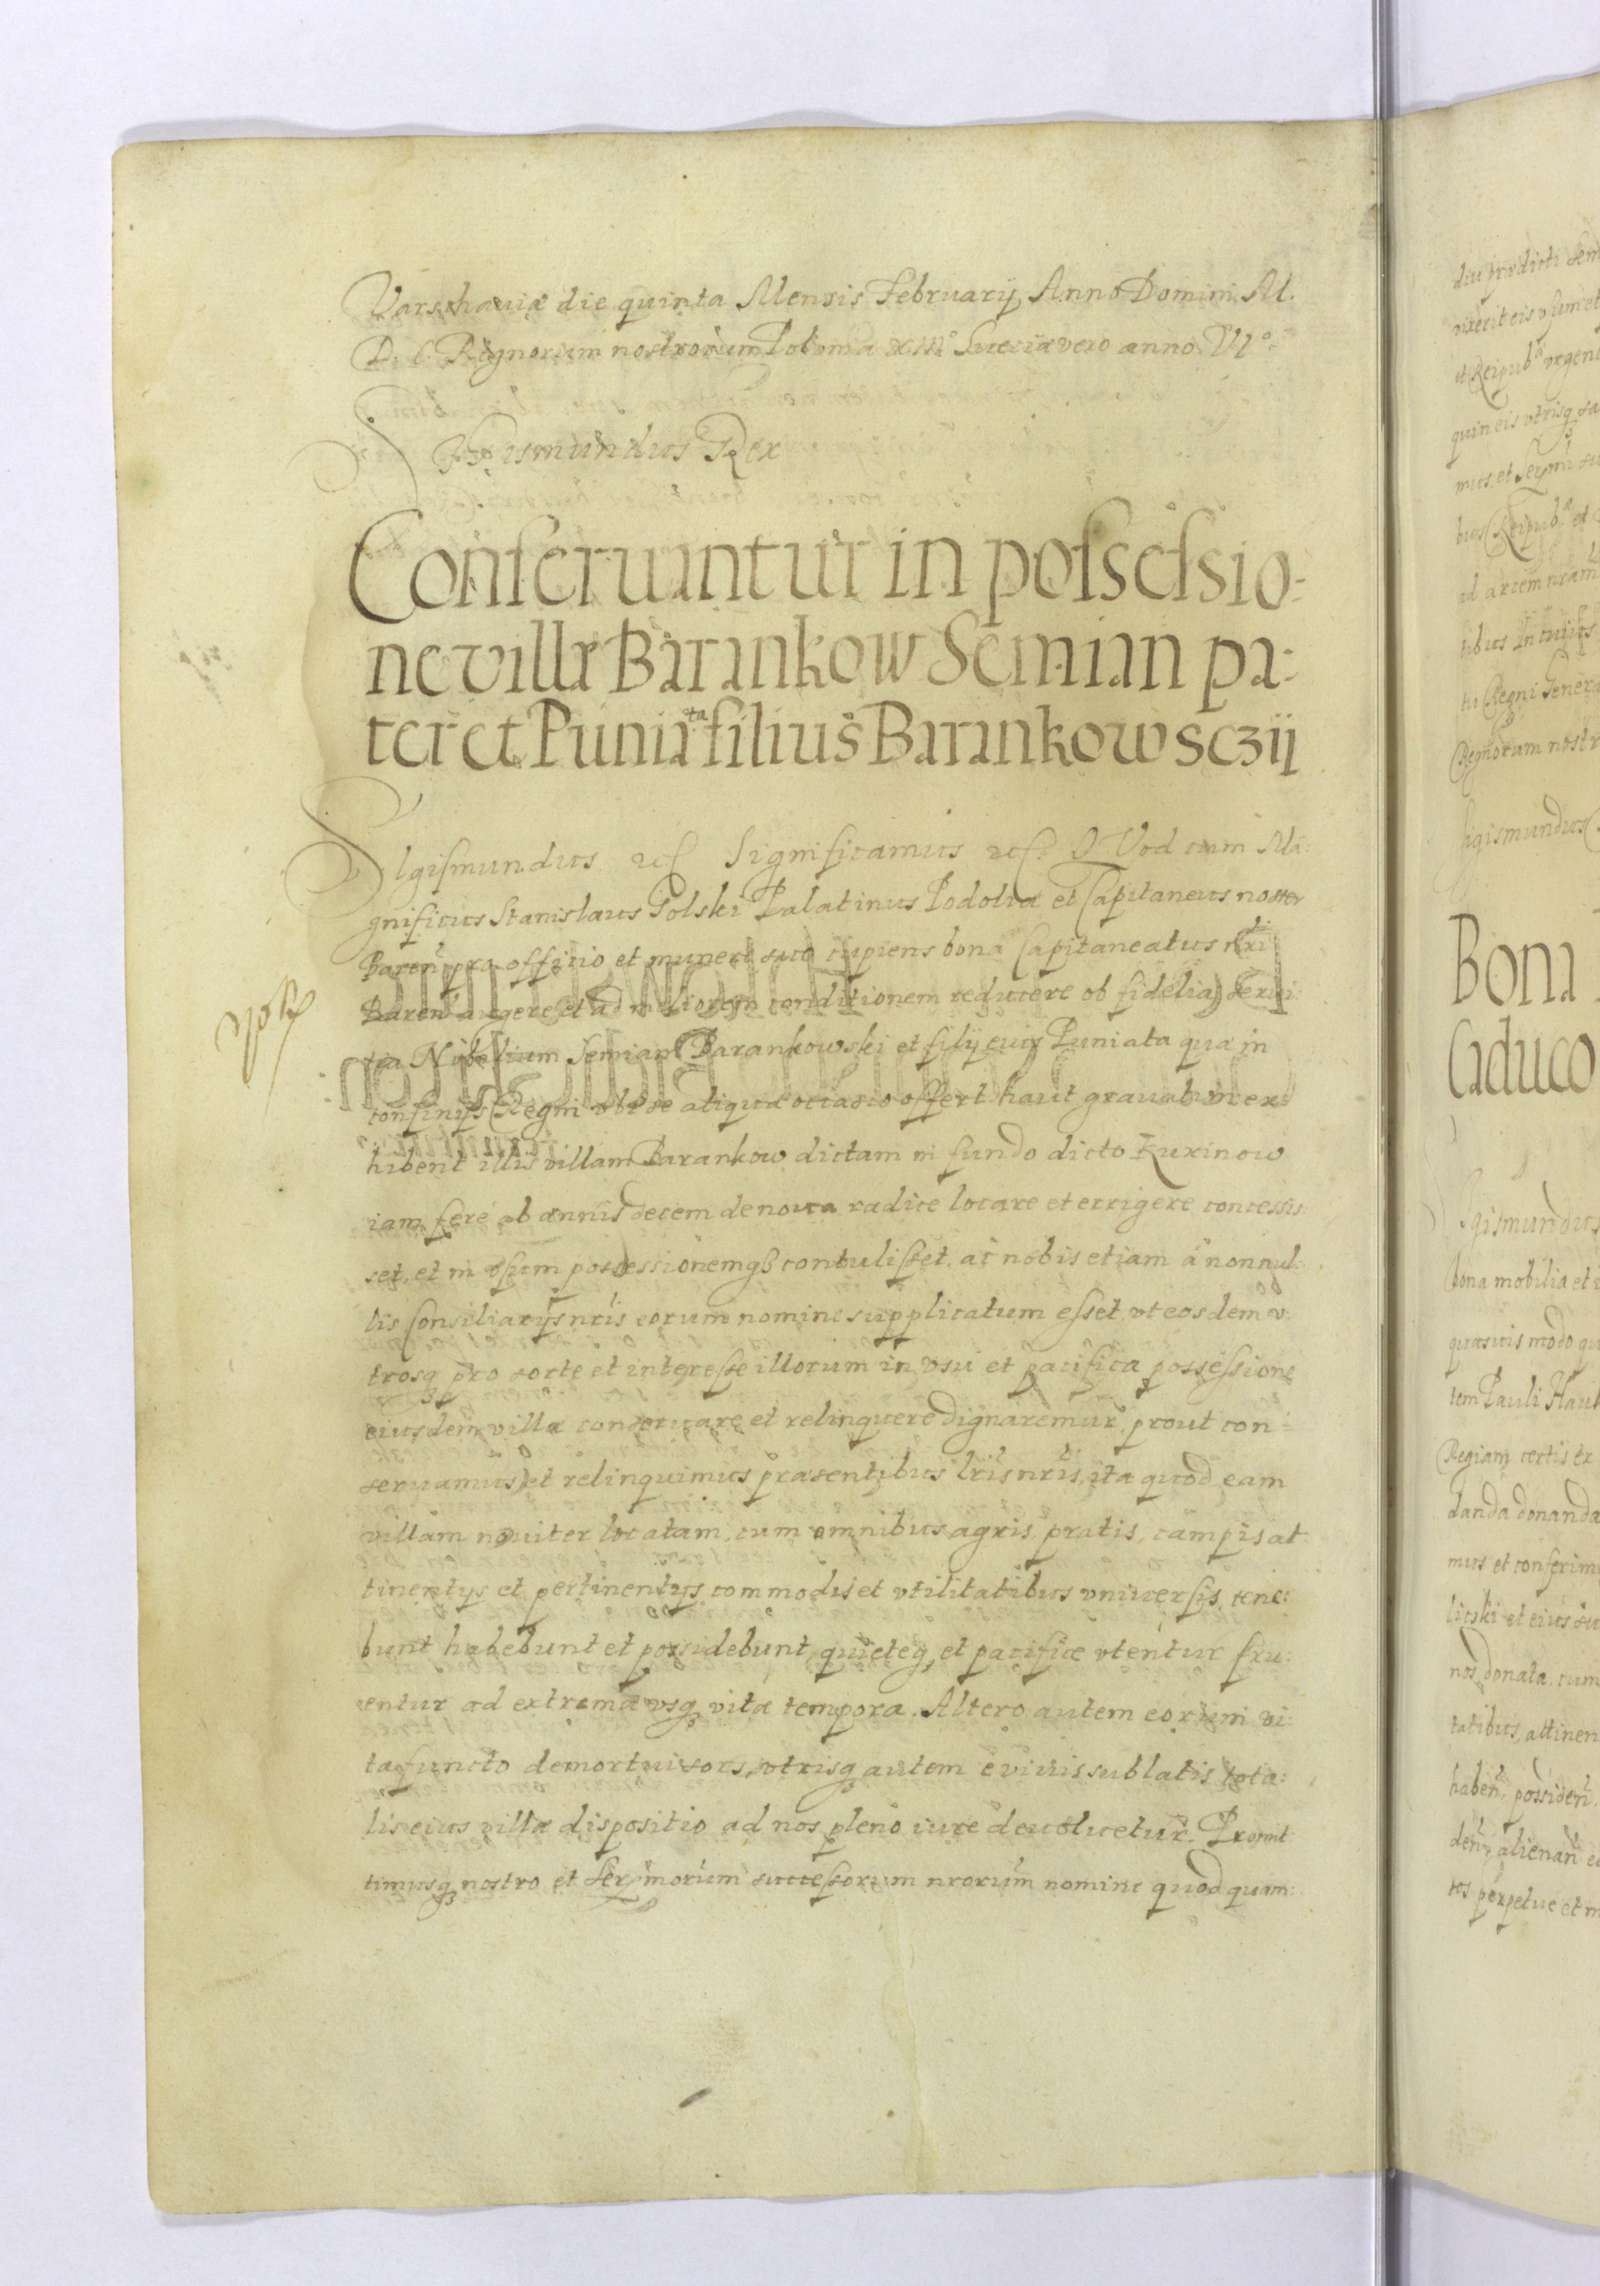 Varschauiæ die quinta Mensis February, Anno Domini M.
D. C. Regnorum nostrorum Poloniæ XIII° Sueciæ vero anno VI°.
Sigismundus Rex
Conseruantur in possessio-
ne villæ Barankow Semian pa-
ter et Puniata filius Barankowsczÿ
Sigismundus Significamus Quod cum Ma:
gnificus Stanislaus Golski Palatinus Podoliæ et Capitaneus noster
Baren̄ pro officio et munere suo cupiens bona Capitaneatus nr̄i
Baren̄ augere et ad meliorem conditionem reducere ob fidelia serui:
tia Nobilium Semian Barankowski et filÿ eius Puniata quæ in
confinÿs Regni vbi se aliqua occasio offert haut grauatim ex:
hibent illis villam Barankow dictam in fundo dicto Kuxinow
iam fere ab annis decem de noua radice locare et errigere concessis:
set, et in vsum possessionemq̢ contulisset, ac nobis etiam a nonnul:
lis Consiliarÿs nr̄is eorum nomine supplicatum esset vt eosdem v:
trosq̢ pro sorte et interesse illorum in vsu et pacifica possessione
eiusdem villæ conseruare et relinquere dignaremur, prout con:
seruamus et relinquimus præsentibus lr̄is nr̄is, ita quod eam
villam nouiter locatam, cum omnibus agris, pratis, campis at
tinentÿs et pertinentÿs commodis et vtilitatibus vniuersis, tene:
bunt habebunt et possidebunt, quieteq̢ et pacifice vtentur fru:
entur ad extrema vsq̢ vitæ tempora. Altero autem eorum vi:
ta functo demortui sors, vtrisq̢ autem e viuis sublatis tota:
lis eius villæ dispositio ad nos pleno iure deuoluetur. Promit
timusq̢ nostro et Ser̄morum successorum nrorum nomine quod quam:
diu prædicti Sem
vixerit eis vsum et
et Reipub
quin eis vtrisq̢
mus, et
bus Reipub et
ad arcem nram
tu Regni Genera
Regnorum nostr
Sigismundus
Bona
Caduco
Sigismundus
bona mobilia et i
quæsitis modo qu
tem Pauli
Regiam certis ex
danda donanda
mus et conferim
licski et eius
nos donata, cum
tatibus, attinen
haben̄, possiden̄,
den̄, alienan̄
tes perpetue et